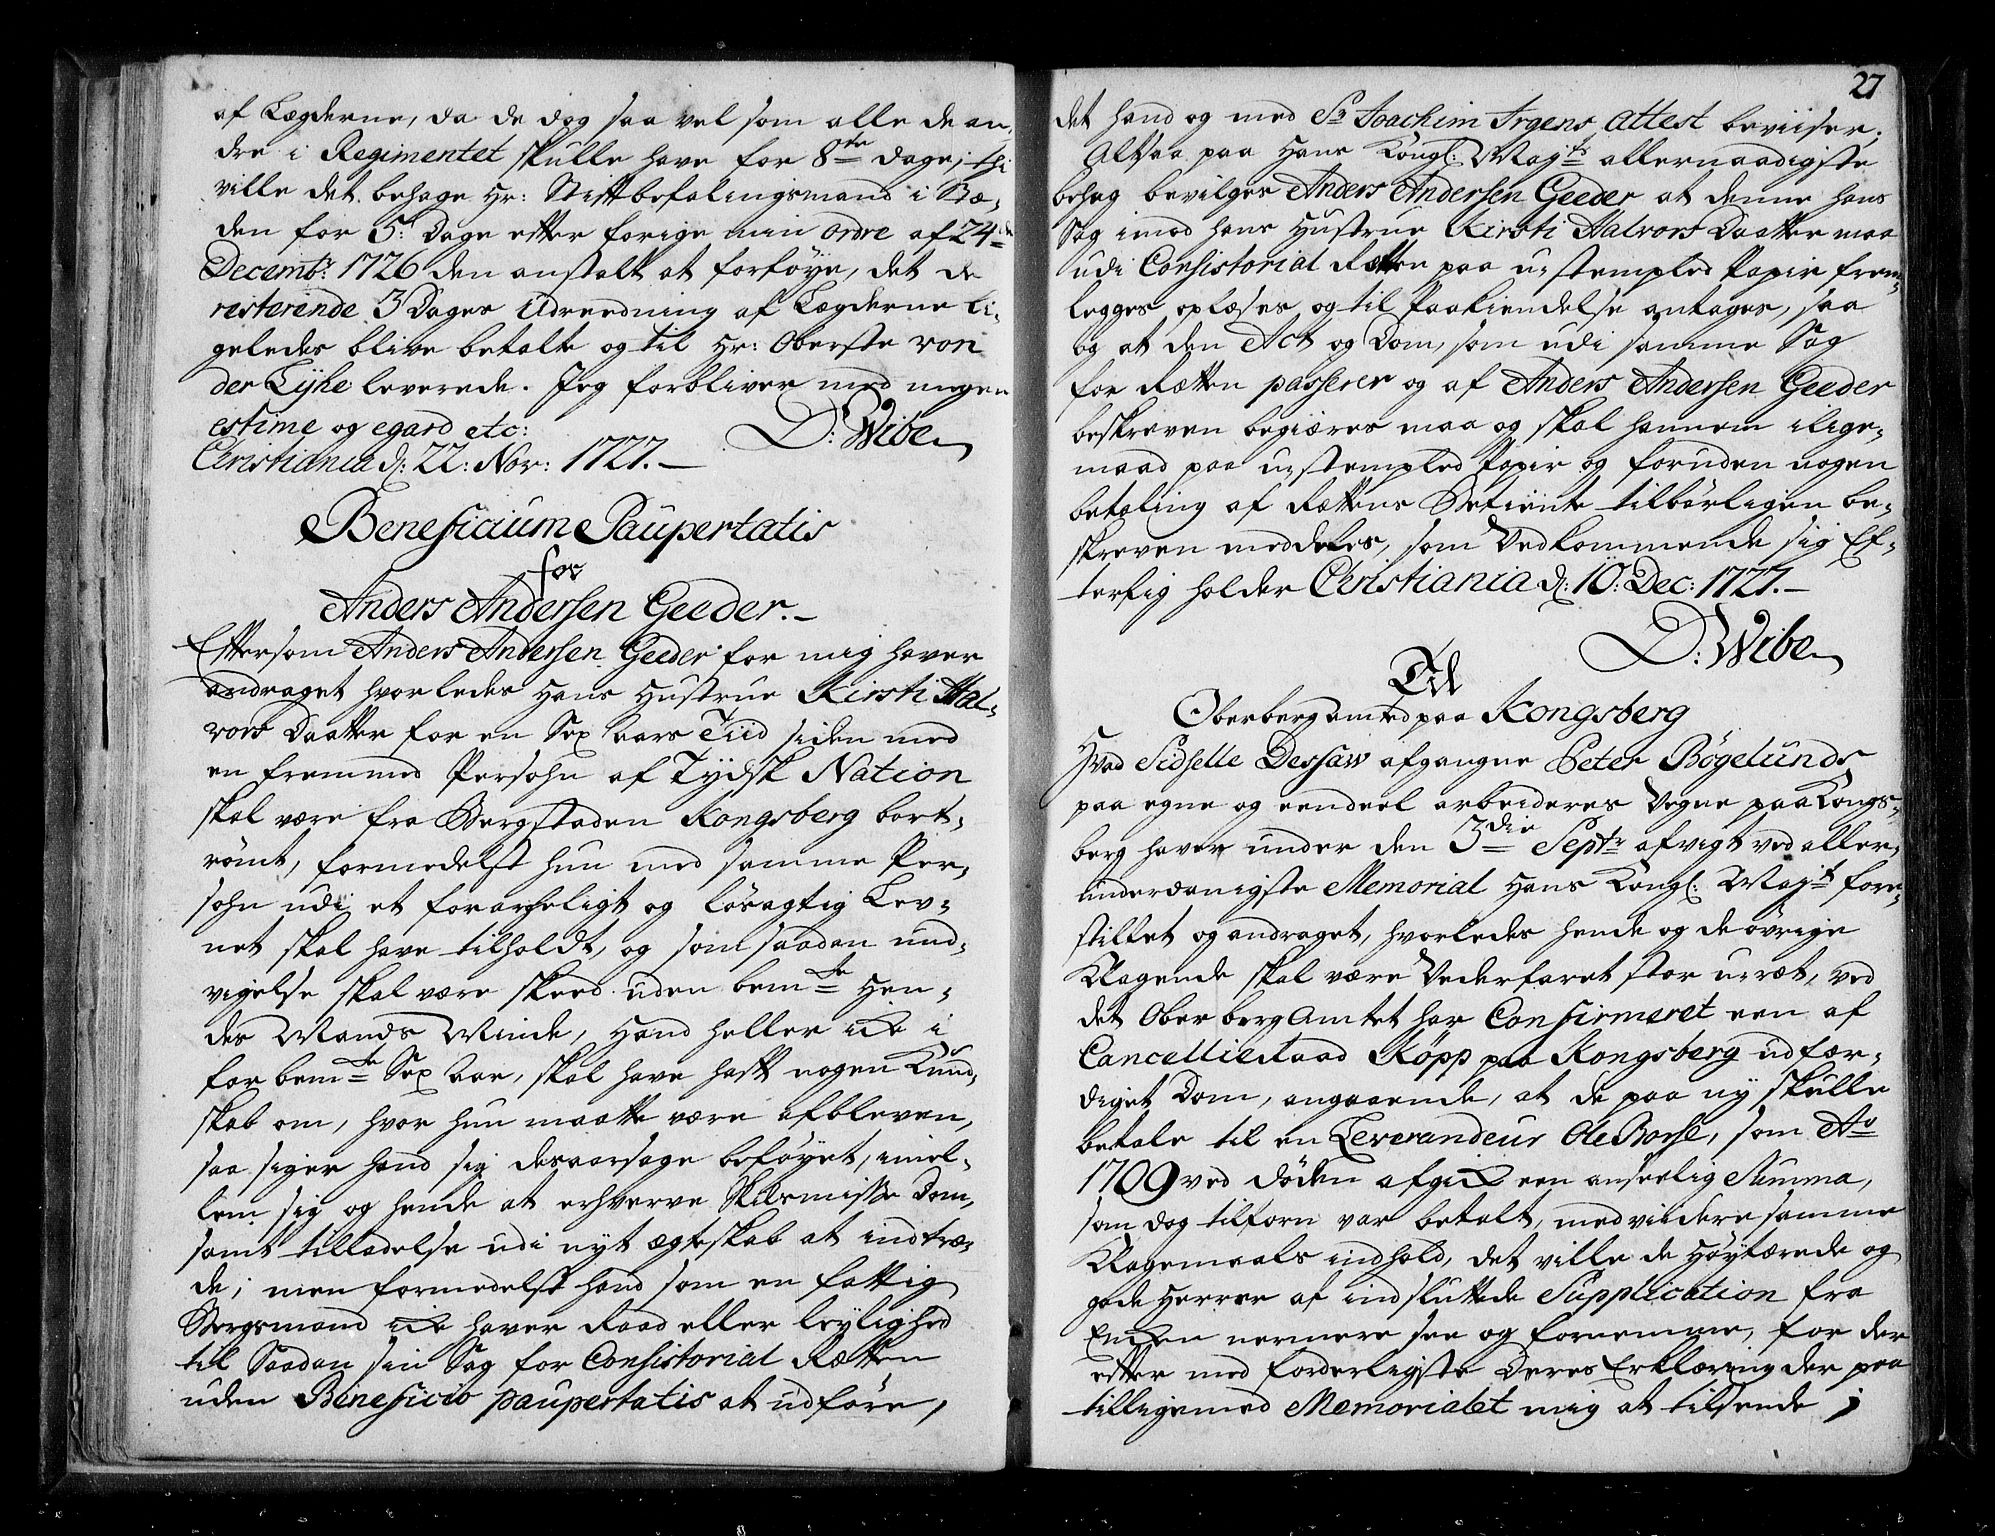 af Lægderne, da de dog saa vel som alle de an¬
dre i Regimentet skulle have for 8te Dage; thi
ville det behage Hr: Stiftbefalingsmand i Stæ¬
den for 5: Dage efter forige min ordre af 24de
Decembr: 1726 den anstalt at forföye, det de
resterende 3 Dages Udreedning af Lægderne li¬
geledes blive betalte og til Hr: Oberste von
der Lyhe leverede. Jeg forbliver med megen
estime og egard etc:
D: Wibe
Christiania d: 22: Nov: 1727.—
Beneficium Paupertatis
for
Anders Andersen Geeder.—
Eftersom Anders Andersen Geeder for mig haver
andraget hvorledes Hans Hustrue Kirsti Hal¬
vors Daatter for en Sex Aars Tiid siden med
en fremmed Persohn af Tydsk Nation
skal være fra Bergstaden Kongsberg bort¬
römt, formedelst hun med samme Per¬
sohn udi et forargeligt og lösagtig Lev¬
net skal have tilholdt, og som saadan und¬
vigelse skal være skeed uden bemte Hen¬
des Mands Minde, Hand heller icke i
forbemte Sex Aar, skal have haft nogen Kund¬
skab om, hvor hun maatte være afbleven,
saa siger hand sig desaarsage beföyet, imel¬
lem sig og hende at erhverve Skilsmisse Dom,
samt tilladelse udi nyt ægteskab at indtræ¬
de; men formedelst hand som en fattig
Bergmand icke haver Raad eller leylighed
til Saadan sin Sag for Consistorial Rætten
uden Beneficio paupertatis at udföre,
27
det hand og med Sr Joachim Irgens Attest beviiser;
Altsaa paa Hans Kongl: Majts allernaadigste
behag bevilges Anders Andersen Geeder at denne hans
Sag imod hans Hustrue Kirsti Halvors Daatter maa
udi Consistorial Rætten paa u-stempled Papir frem¬
legges, oplæses, og til Paakiendelse antages, saa
og at den Act og Dom, som udi samme Sag
for Rætten passerer og af Anders Andersen Geeder
beskreven begiæres maa og skal hannem i lige¬
maad paa u-stempled Papir og foruden nogen
betaling af Rættens Betiente tilbörligen be¬
skreven meddeles, som Vedkommende sig Ef¬
terfig holder Christiania d: 10: Dec: 1727.—
D: Wibe
Til
Oberbergamted paa Kongsberg
Hvad Sidselle Dessaw afgangne Peter Bøgelunds
paa egne og eendeel arbeideres Vegne paa Kongs¬
berg haver under den 3die Septr afvigt ved aller¬
underdanigste Memorial Hans Kongl: Majt fore¬
stillet og andraget, hvorledes hende og de övrige
Klagende skal være Vederfaret stor urræt, ved
det Ober bergAmtet har Confirmeret een af
CancellieRaad Köpp paa Kongsberg udfær¬
diget Dom, angaaende, at de paa ny skulle
betale til en Leverandeur Ole Borse, som Ao
1709 ved döden afgick een anseelig Summa,
som dog tilforn var betalt, med viidere samme
Klagemaals indhold, det ville de Höytærede og
gode Herrer af indsluttede Supplication fra
Encken nermere see og fornemme, for der
efter med forderligste Deres Erklæring der paa
tilligemed Memorialet mig at tilsende;